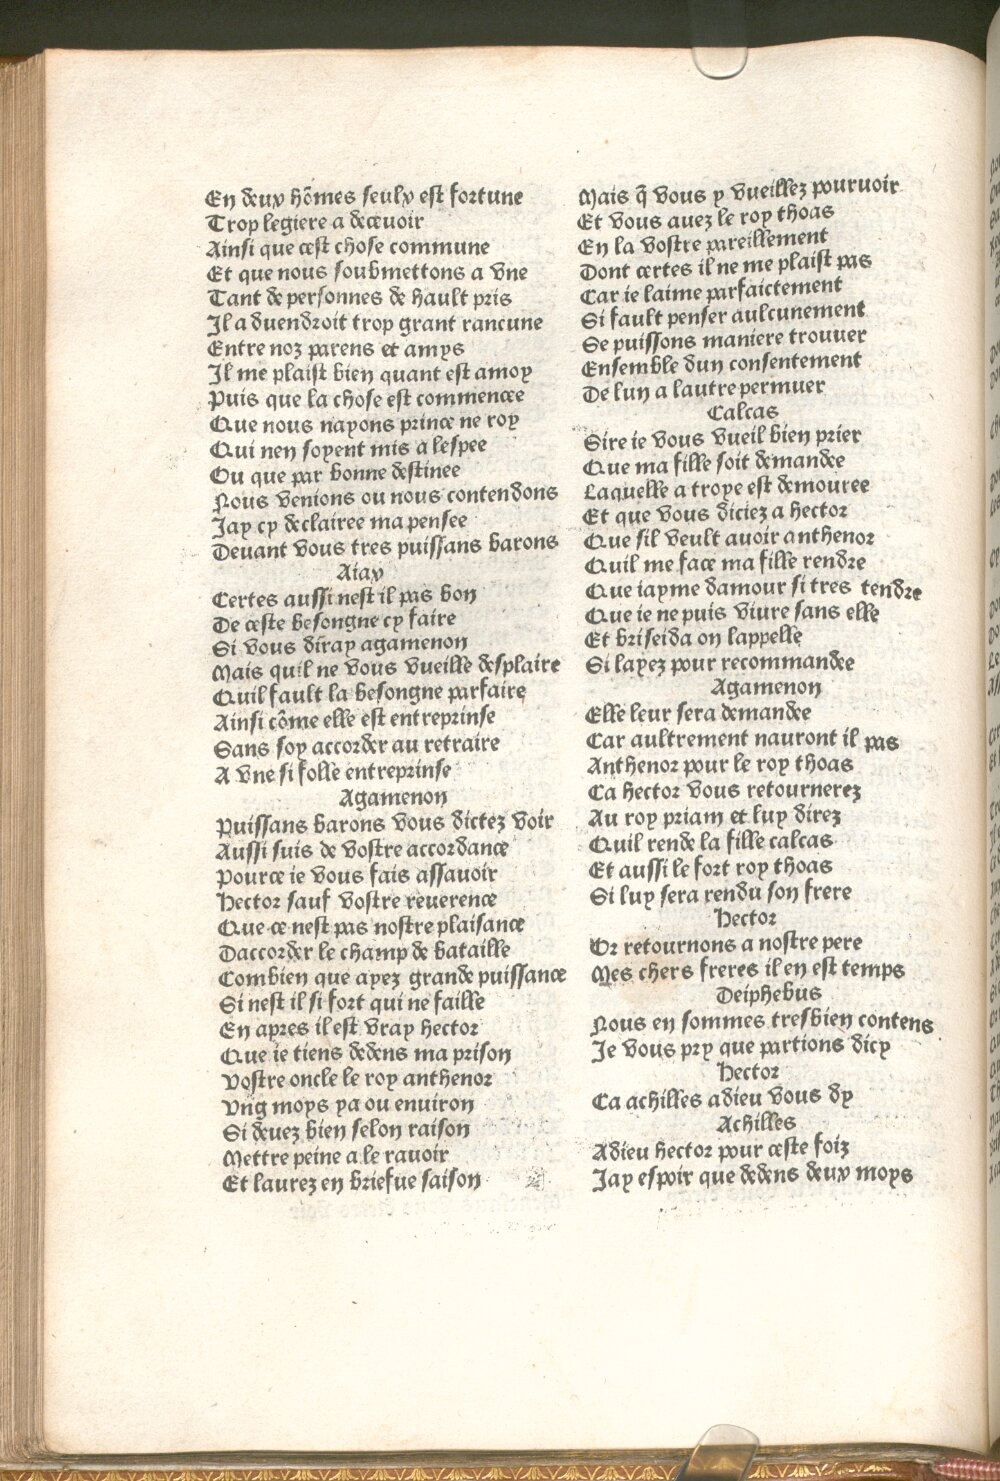 En deux hõmes seulx est fortune
Trop legiere a deceuoir
Ainsi que cest chose commune
Et que nous soubmettons a vne
Tant de personnes de hault pris
Il a duendroit trop grant rancune
Entre noz parens et amys
Il me plaist bien quant est amoy
Puis que la chose est commencee
Que nous nayons prince ne roy
Qui nen soyent mis a lespee
Ou que par bonne destinee
Nous venions ou nous contendons
Jay cy declairee ma pensee
Deuant vous tres puissans barons
Aiax
Certes aussi nest il pas bon
De ceste besongne cy faire
Si vous diray agamenon
Mais quil ne vous vueille desplaire
Quil fault la besongne parfaire
Ainsi cõme elle est entreprinse
Sans soy accorder au retraire
A vne si folle entreprinse
Agamenon
Puissans barons vous dictez voir
Aussi suis de vostre accordance
Pource ie vous fais assauoir
Hector sauf vostre reuerence
Que ce nest pas nostre plaisance
Daccorder le champ de bataille
Combien que ayez grande puissance
Si nest il si fort qui ne faille
En apres il est vray hector
Que ie tiens dedens ma prison
Vostre oncle le roy anthenor
Vng moys ya ou enuiron
Si deuez bien selon raison
Mettre peine a le rauoir
Et laurez en briefue saison
Mais q̃ vous y vueillez pouruoir
Et vous auez le roy thoas
En la vostre pareillement
Dont certes il ne me plaist pas
Car ie laime parfaictement
Si fault penser aulcunement
Se puissons maniere trouuer
Ensemble dun consentement
De lun a lautre permuer
Calcas
Sire ie vous vueil bien prier
Que ma fille soit demandee
Laquelle a troye est demouree
Et que vous diciez a hector
Que sil veult auoir anthenor
Quil me face ma fille rendre
Que iayme damour si tres tendre
Que ie ne puis viure sans elle
Et briseida on lappelle
Si layez pour recommandee
Agamenon
Elle leur sera demandee
Car aultrement nauront il pas
Anthenor pour le roy thoas
Ca hector vous retournerez
Au roy priam et luy direz
Quil rende la fille calcas
Et aussi le fort roy thoas
Si luy sera rendu son frere
Hector
Or retournons a nostre pere
Mes chers freres il en est temps
Deiphebus
Nous en sommes tresbien contens
Je vous pry que partions dicy
Hector
Ca achilles adieu vous dy
Achilles
Adieu hector pour ceste foiz
Jay espoir que dedens deux moys